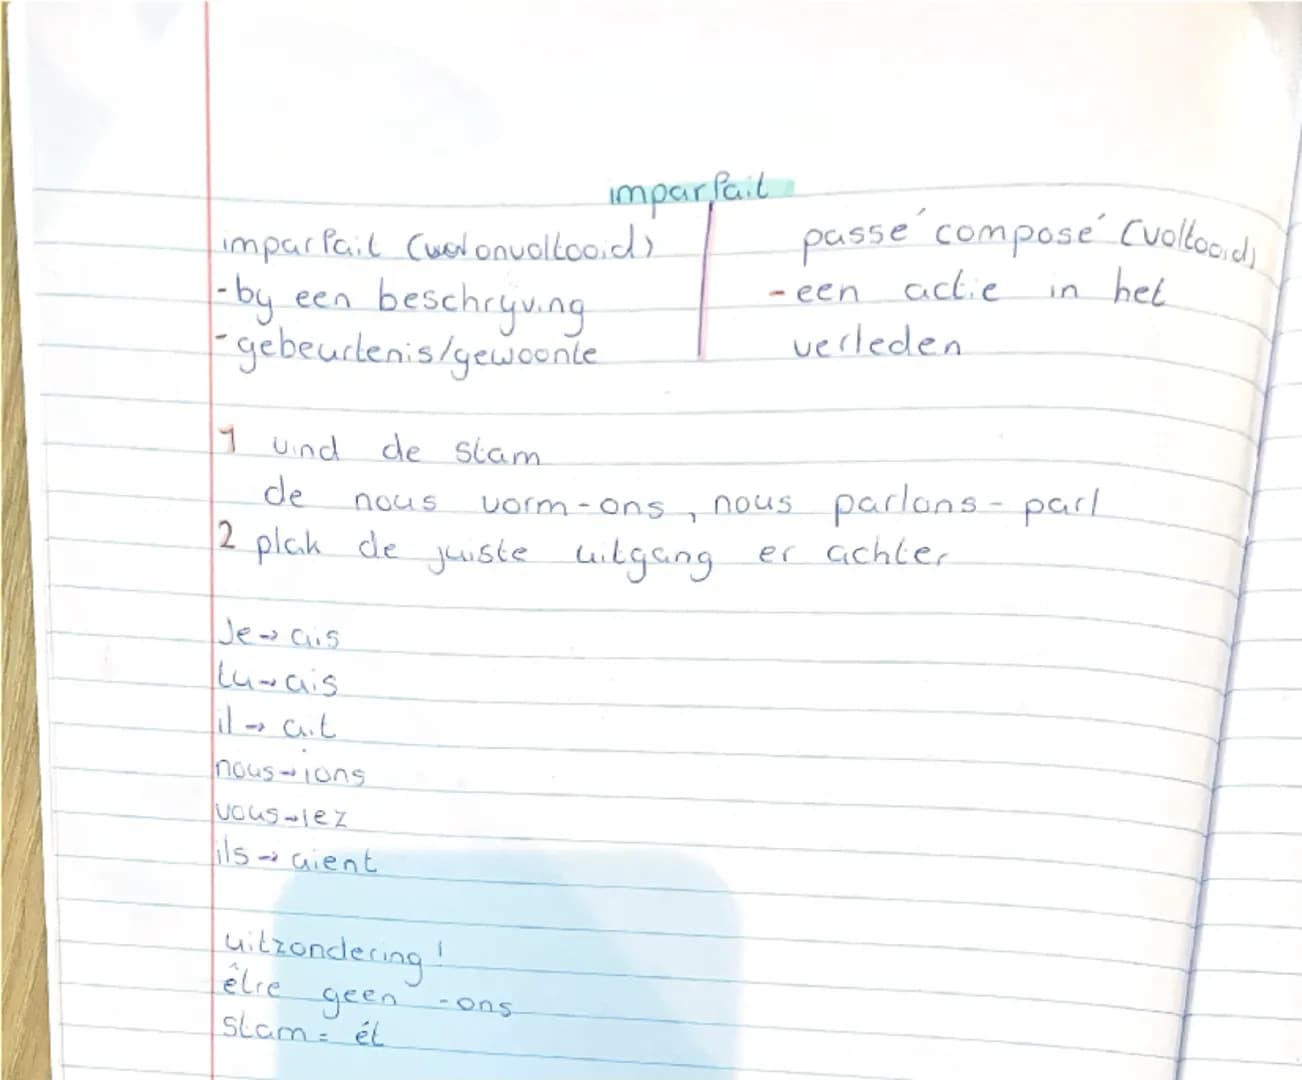 imparfait
imparfait (onvoltooid)
- by een beschryving
- gebeurtenis/gewoonte
passé composé (voltooid)
- een actie in het
verleden
1 vind de stam
de nous vorm-ons, nous parlons - parl
2 plak de juiste uitgang er achter
Je → ais
tu → ais
il → ait
nous → ions
vous → iez
ils → aient
uitzondering!
être geen -ons
stam = ét